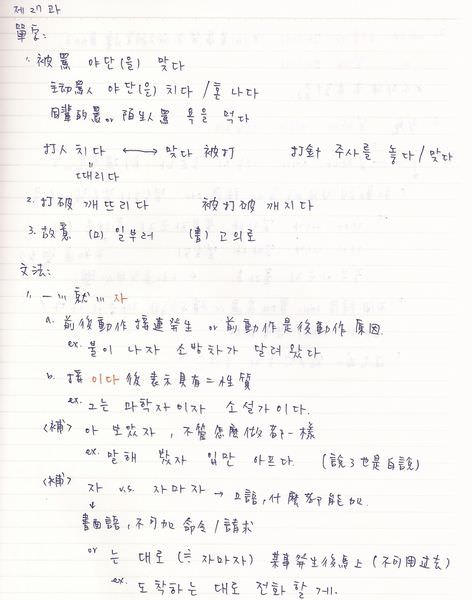 제 27 과
單字:
1. 被罵 야단(을) 맞다
主動罵人 야단(을) 치다 / 혼 나다
同輩的罵 or 陌生人罵 욕을 먹다
打人 치다 ⟷ 맞다 被打 打針 주사를 놓다 / 맞다
=
때리다
2. 打破 깨 뜨리 다 被打破 깨 지 다
3. 故意 (口) 일부러 (書) 고의로
文法:
1. 一 … 就 … 자
a. 前後動作接連發生 or 前動作是後動作原因.
ex. 불이 나자 소방차가 달려 왔다
b. 接 이다 後表示具有二性質
ex. 그는 과학자이자 소설가이다.
<補> 아 보았자 , 不管怎麼做都一樣
ex. 말해 봤자 입만 아프다. (說了也是白說)
<補> 자 v.s. 자마자 → 口語, 什麼都能加.
↓
書面語, 不可加 命令 / 請求
or 는 대로 (= 자마자) 某事發生後馬上 (不可用過去)
ex. 도착하는 대로 전화 할 게.